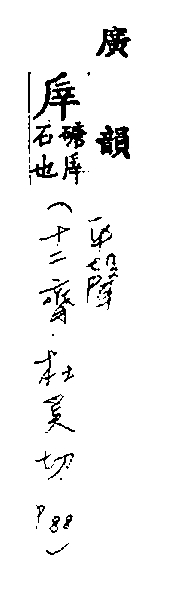 廣韻
厗
磄厗
石也
平聲
(十二齊·杜奚切 P88)